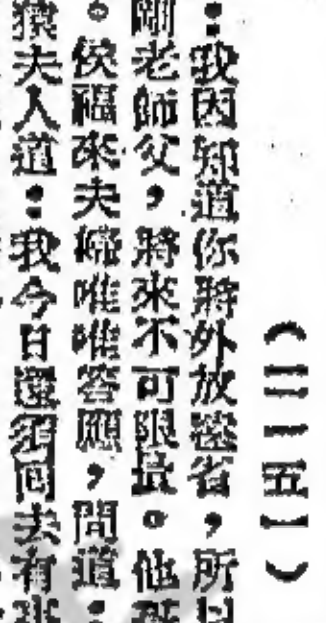 （二一五一）
：我因知道你將外放省，所以
剛老師父，將來不可限量。他
。侯福來夫婦唯唯答應，問道：
猿夫人道：我今日還須囘去有事